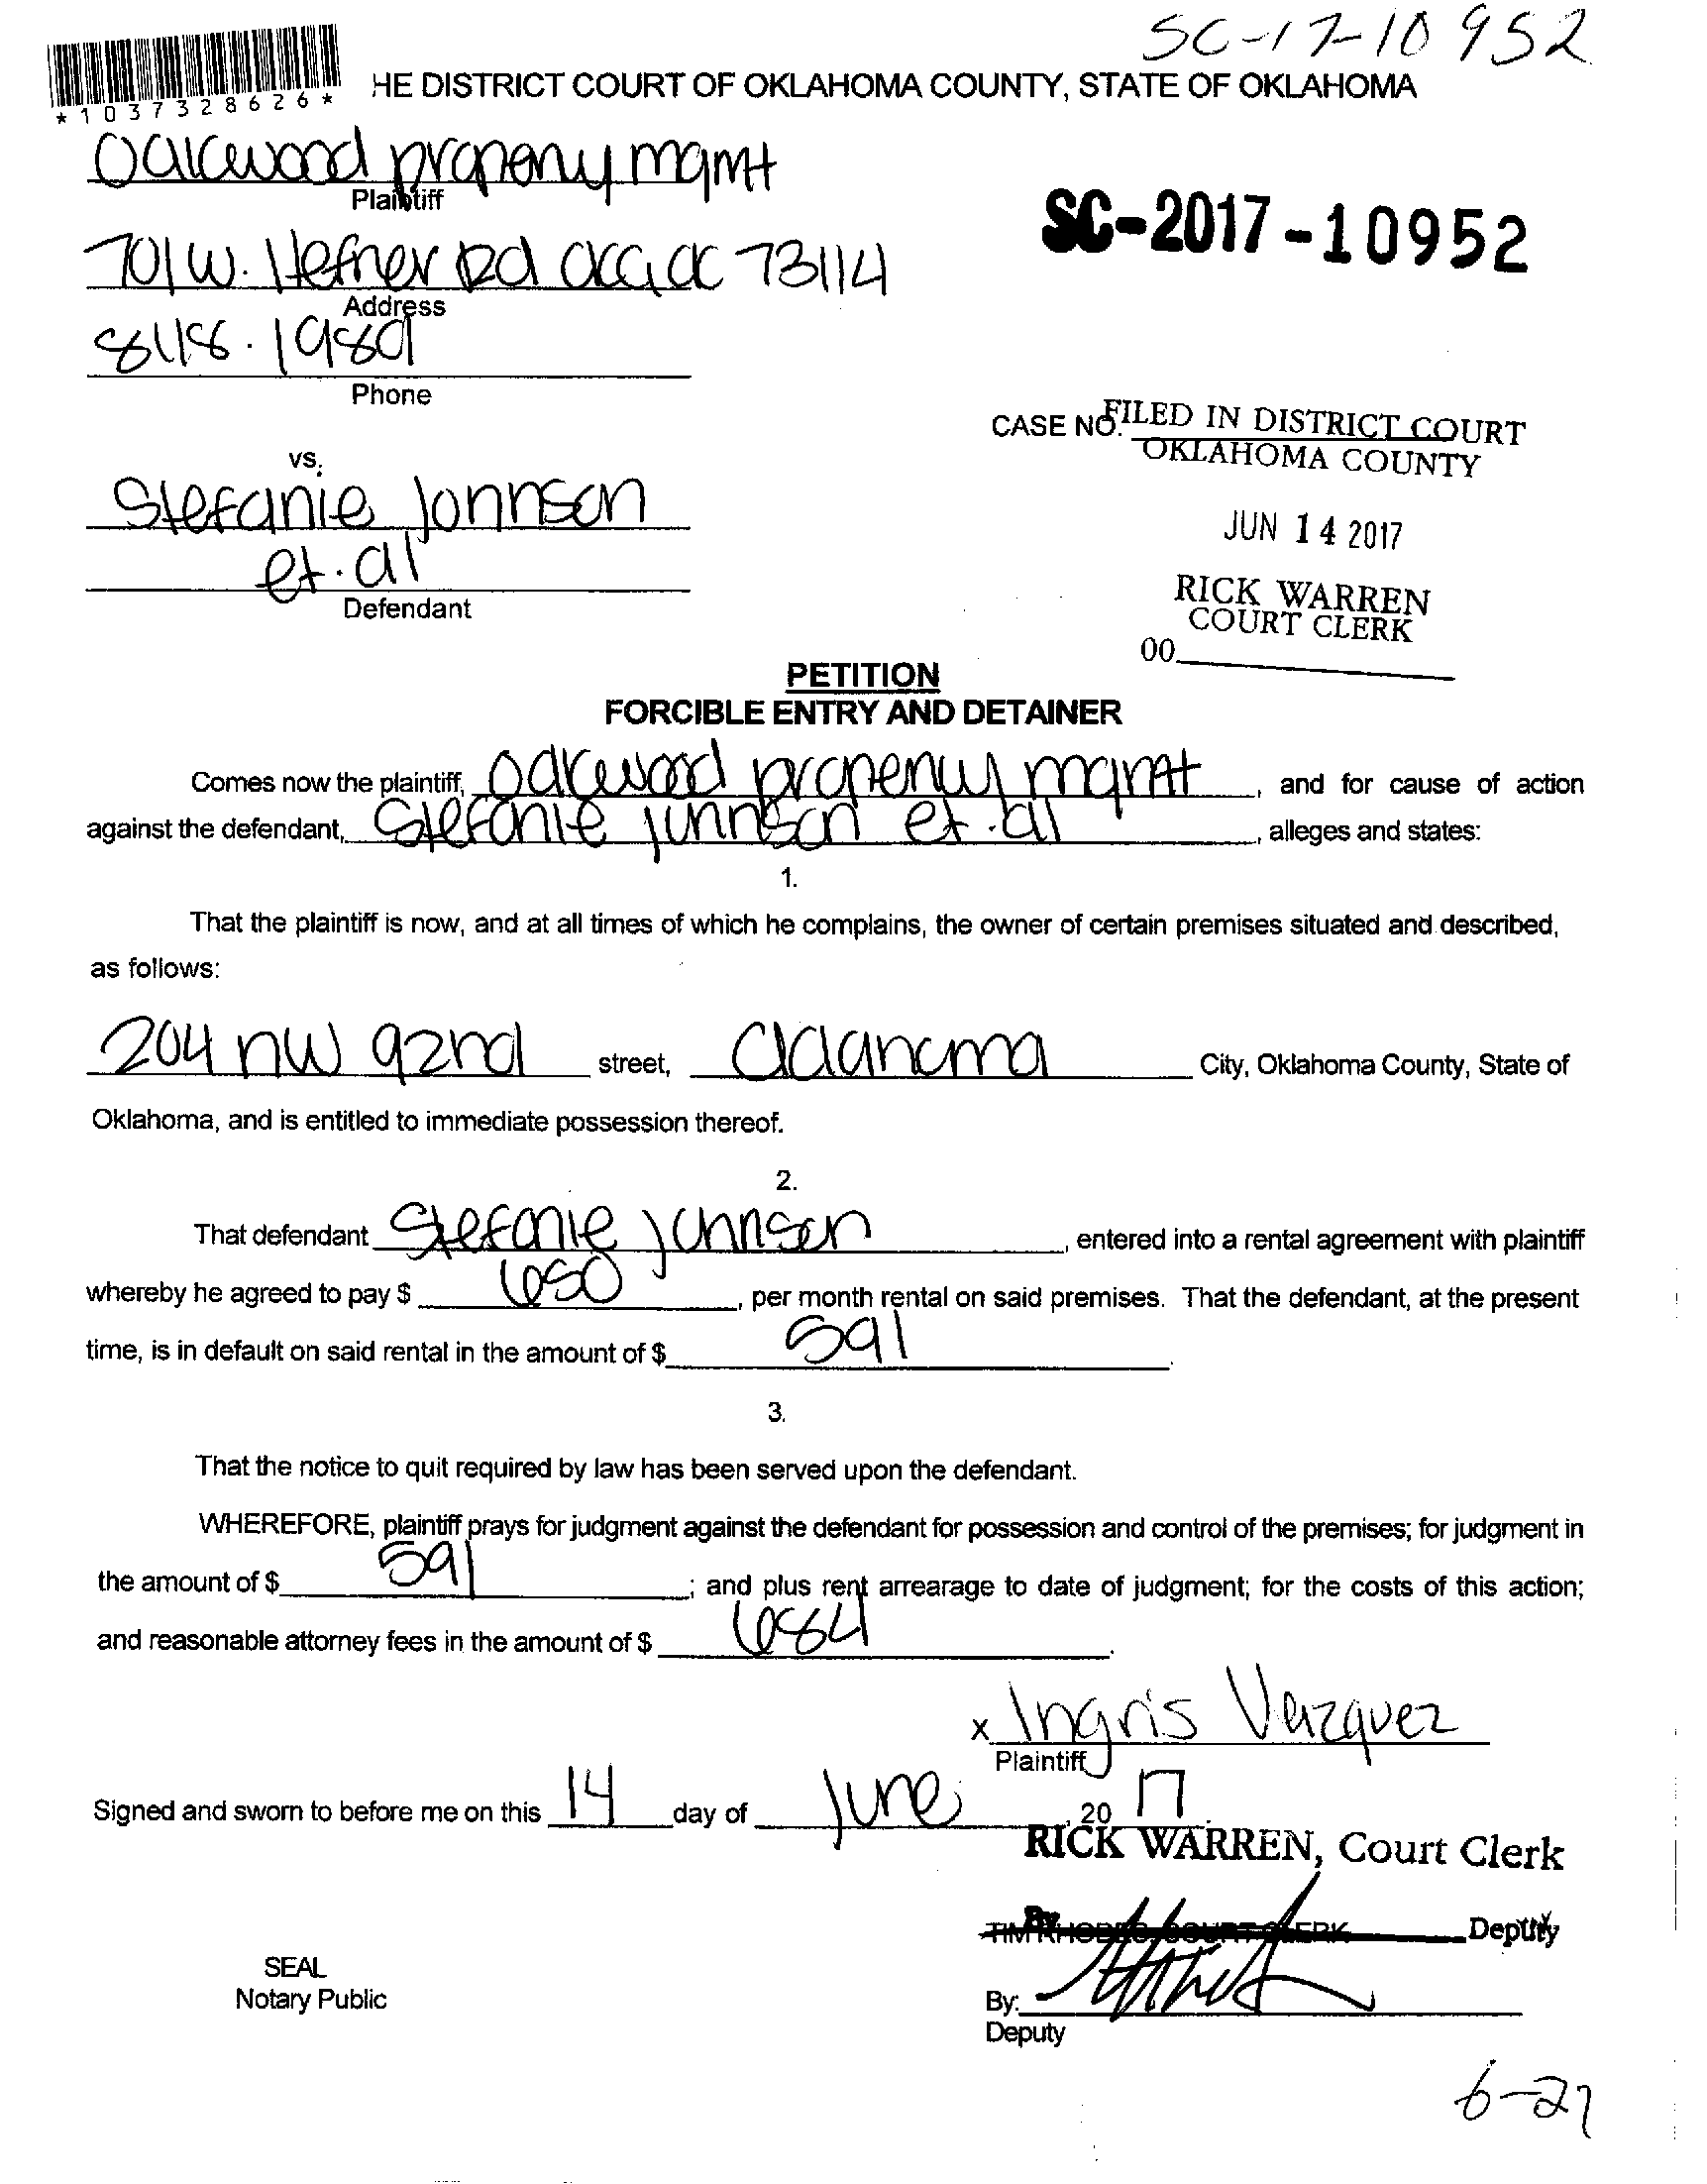 SC-17-10952
*1037328626*
HE DISTRICT COURT OF OKLAHOMA COUNTY, STATE OF OKLAHOMA
Oakwood property mgmt
Plaintiff
SC-2017-10952
701 W. Hefner Rd OKC, OK 73114
Address
848.1989
Phone
CASE NO.
FILED IN DISTRICT COURT
OKLAHOMA COUNTY
vs.
Stefanie Johnson
et.al
Defendant
JUN 14 2017
RICK WARREN
COURT CLERK
00
PETITION
FORCIBLE ENTRY AND DETAINER
Comes now the plaintiff, Oakwood property mgmt, and for cause of action
against the defendant, Stefanie Johnson et.al, alleges and states:
1.
That the plaintiff is now, and at all times of which he complains, the owner of certain premises situated and described,
as follows:
204 nw 92nd street, Oklahoma City, Oklahoma County, State of
Oklahoma, and is entitled to immediate possession thereof.
2.
That defendant Stefanie Johnson, entered into a rental agreement with plaintiff
whereby he agreed to pay $ 650, per month rental on said premises. That the defendant, at the present
time, is in default on said rental in the amount of $ 591.
3.
That the notice to quit required by law has been served upon the defendant.
WHEREFORE, plaintiff prays for judgment against the defendant for possession and control of the premises; for judgment in
the amount of $ 591; and plus rent arrearage to date of judgment; for the costs of this action;
and reasonable attorney fees in the amount of $ 684.
x Ingris Vazquez
Plaintiff
Signed and sworn to before me on this 14 day of June, 20 17.
RICK WARREN, Court Clerk
By Deputy
TIM RHODES, COURT CLERK
SEAL
Notary Public
By:
Deputy
6-27